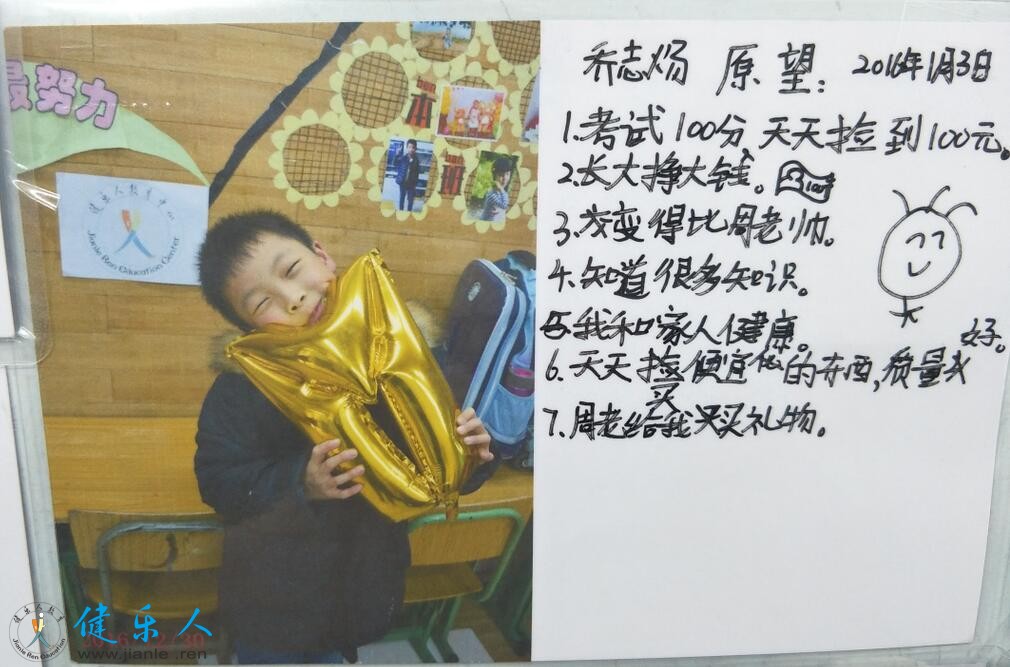 最努力
ben
本
ban
班
健乐人教育中心
Jianle Ren Education Center
乔志炀 原望: 2016年1月3日
1.考试100分,天天捡到100元。
2.长大挣大钱。
3.变得比周老帅。
4.知道很多知识。
5.我和家人健康。
6.天天买便宜的东西,质量好。
7.周老给我买礼物。
健乐人
www.jianle.ren
健乐人教育
Jianle Ren Education